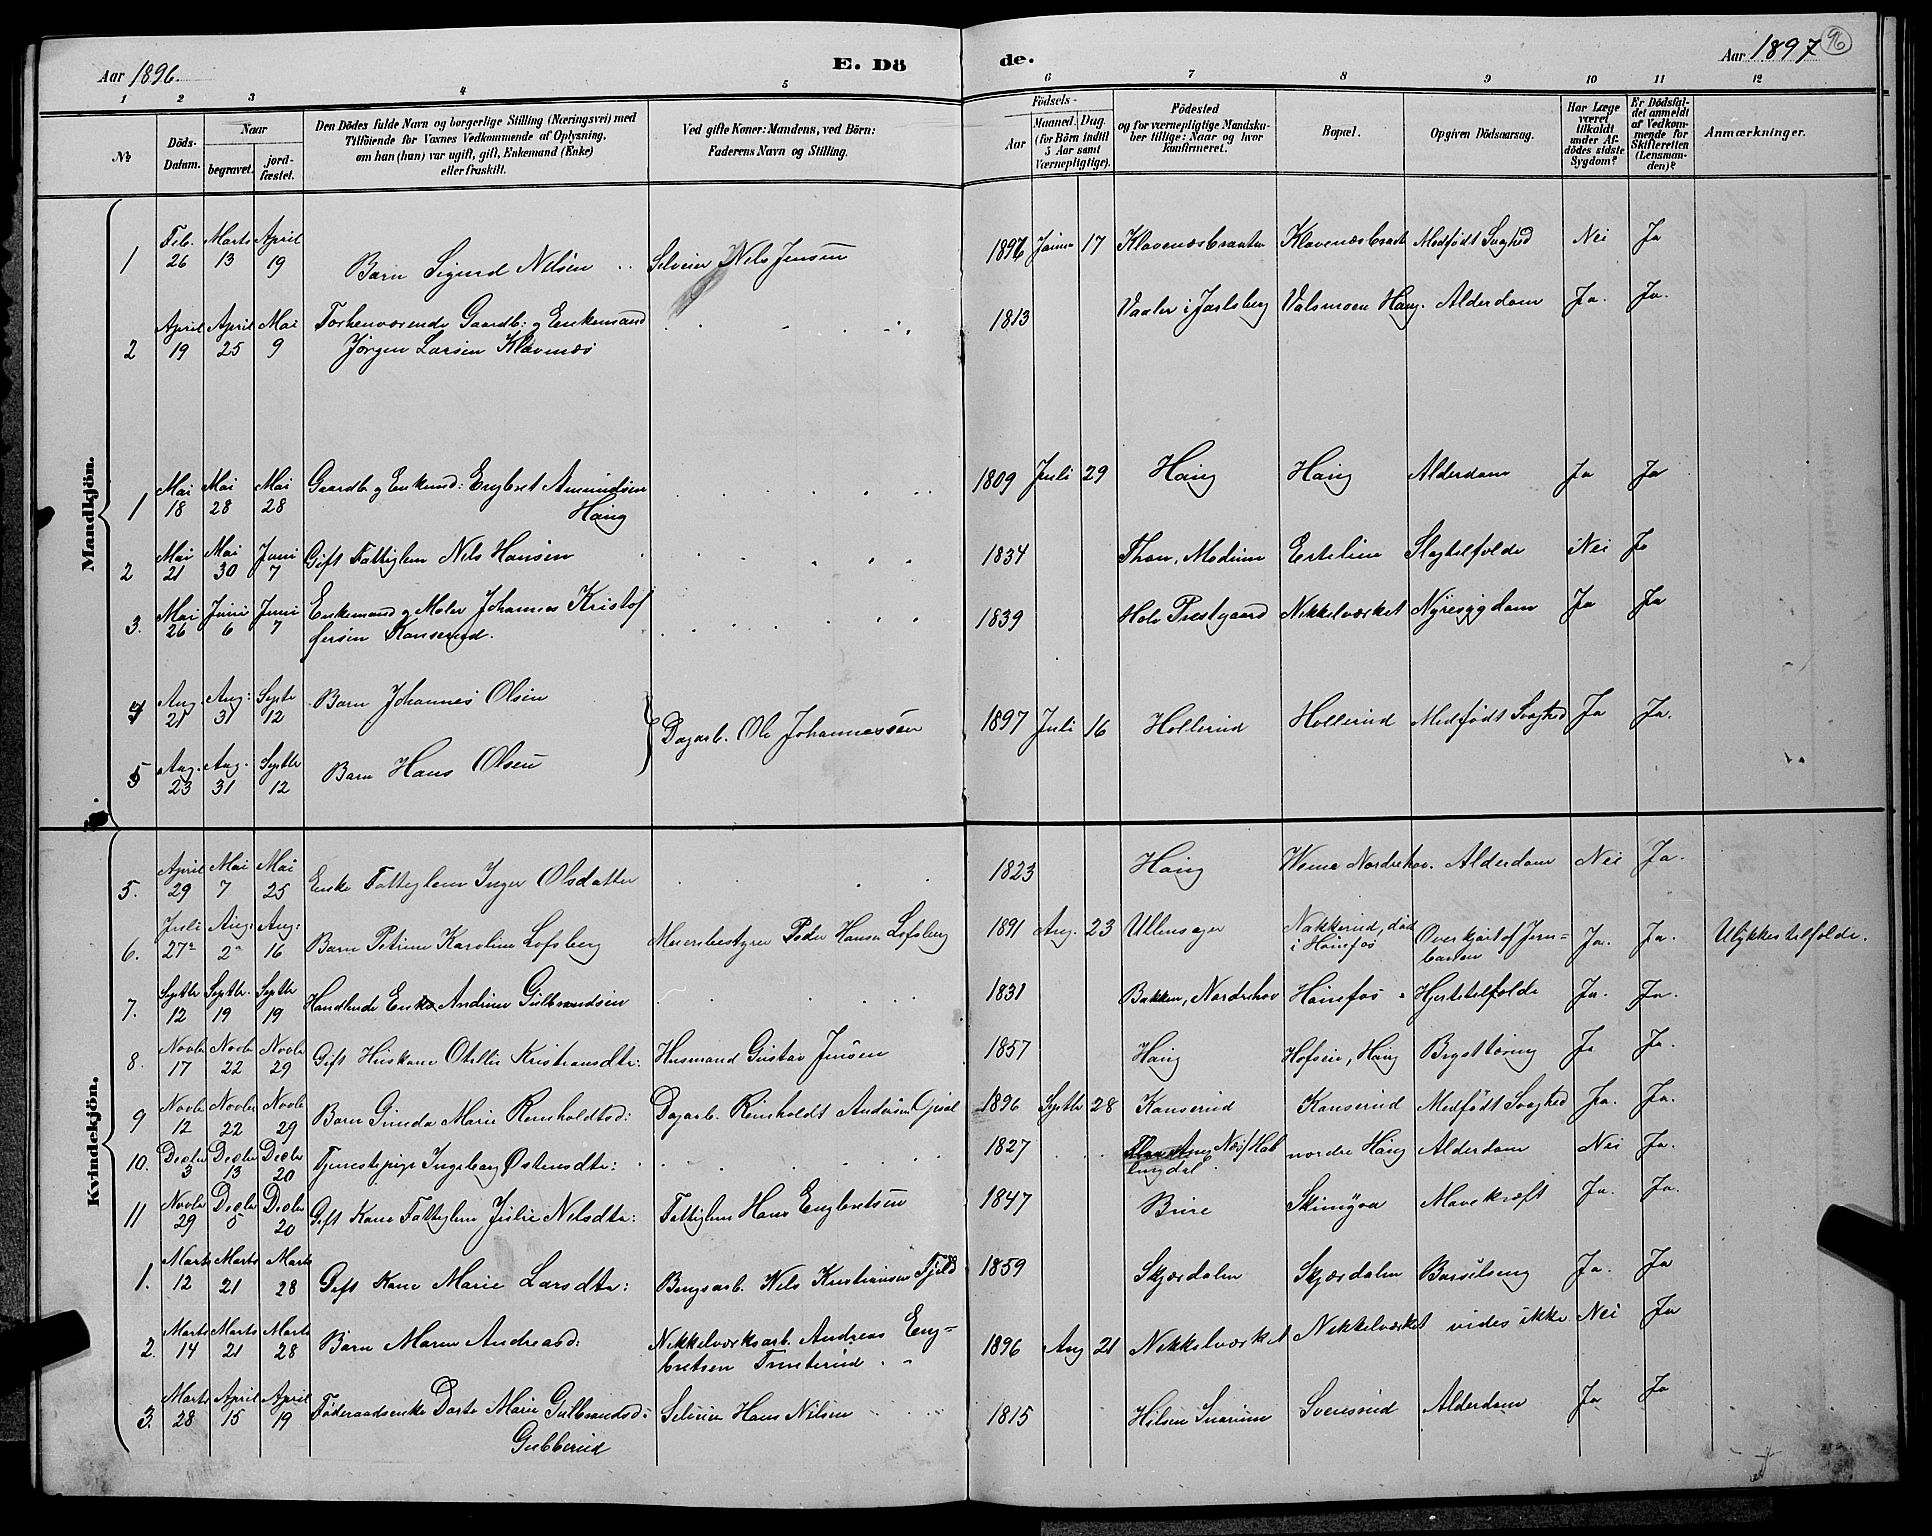 Aar 1896. E. Dö
de. Aar 1897 96
1 2 3 4 5 6 7 8 9 10 11 12
№
Döds-Datum.
Naar
begravet.
jord-fæstet.
Den Dödes fulde Navn og borgerlige Stilling (Næringsvei) med
Tilföiende for Voxnes Vedkommende af Oplysning,
om han (hun) var ugift, gift, Enkemand (Enke)
eller fraskilt.
Ved gifte Koner: Mandens, ved Börn:
Faderens Navn og Stilling.
Födsels-
Aar
Maaned. Dag.
(for Börn indtil
5 Aar samt
Værnepligtige).
Födested
og for værnepligtige Mandska-
ber tillige: Naar og hvor
konfirmeret.
Bopæl.
Opgiven Dödsaarsag.
Har Læge
været
tilkaldt
under Af-
dödes sidste
Sygdom?
Er Dödsfal-
det anmeldt
af Vedkom-
mende for
Skifteretten
(Lensman-
den)?
Anmærkninger.
Mandkjön.
1 Feb. 26 Marts 13 April 19 Barn Sigurd Nilsen Selveier Nels Jensen 1896 Januar 17 Klavenæsbraaten Klavenæsbraat Medfödt Svaghed Nei Ja
2 April 19 April 25 Mai 9 Forhenværende Gaardb: og Enkemand
Jørgen Larsen Klavenæs 1813 Vaaler i Jarlsberg Valsmoen Haug. Alderdom Ja. Ja.
1 Mai 18 Mai 28 Mai 28 Gaardb. og Enkemd: Engbret Amundsen
Haug 1809 Juli 29 Haug Haug Alderdom Ja Ja
2 Mai 21 Mai 30 Juni 7 Gift Fattiglem Nils Hansen 1834 Modum Ertelien Slagtilfelde Nei Ja
3. Mai 26 Juni 6 Juni 7 Enkemand og Maler Johannes Kristof
fersen Kanserud. 1839 Hole Prestgaard Nikkelværket Nyresygdom Ja Ja
4 Aug. 21 Aug: 31 Septbr 12 Barn Johannes Olsen Dagarb. Ole Johannessen 1897 Juli 16 Hollerud Hollerud Medfödt Svaghed Ja Ja.
5 Aug. 23 Aug. 31 Septbr 12 Barn Hans Olsen
Kvindekjön.
5. April 29 Mai 7 Mai 25 Enke Fattiglem Inger Olsdatter 1823 Haug Nordrehov. Alderdom Nei Ja.
6. Juli 27 Aug: 2 Aug: 16 Barn Petrine Karoline Lofsberg Meieribestyrer Peder Hansen Lofsberg 1891 Aug. 23 Ullensager Nakkerud, död
i Hönefos Overkjört af Jern=
banen Ja. Ja. Ulykkestilfelde.
7. Septbr 12 Septbr. 19 Septbr 19 Handlende Enke Andrine Gulbrandsen 1831 Bakken, Nordrehov Hönefos Hjertetilfelde Ja. Ja.
8. Novbr 17 Novbr 22 Novbr 29 Gift Huskone Otellie Kristiansdtr: Husmand Gustav Jensen 1857 Haug Hofsein, Haug Brysttæring Ja Ja.
9 Novbr 12 Novbr 22 Novbr 29 Barn Gunda Marie Reinholdtsd: Dagarb. Reinholdt Andersen 1896 Septbr 28 Kanserud Kanserud Medfödt Svaghed Ja. Ja.
10. Decbr 3 Decbr 13 Decbr 20 Tjenestepige Ingeborg Østensdtr: 1827 Næs Hal
lingdal. nordre Haug Alderdom Nei Ja.
11 Novbr 29 Decbr 5 Decbr 20 Gift Kone Fattiglem Julie Nilsdtr: Fattiglem Hans Engbretsen 1847 Bure Skimyra Mavekræft Ja. Ja.
1. Marts 12 Marts 21 Marts 28 Gift Kone Marie Larsdtr: Bergsarb. Nels Kristiansen Fjeld 1859 Skjærdalen Skjærdalen Barselseng Ja. Ja
2. Marts 14 Marts 21 Marts 28 Barn Maren Andreasd: Nikkelværksarb. Andreas Eng=
bretsen 1896 Aug 21 Nikkelværket Nikkelværket vides ikke Nei Ja
3. Marts 28 April 15 April 19 Føderaadsenke Dorte Marie Gulbrandsd:
Gubberud Selveier Hans Nilsen 1815 Svensrud Alderdom Ja Ja